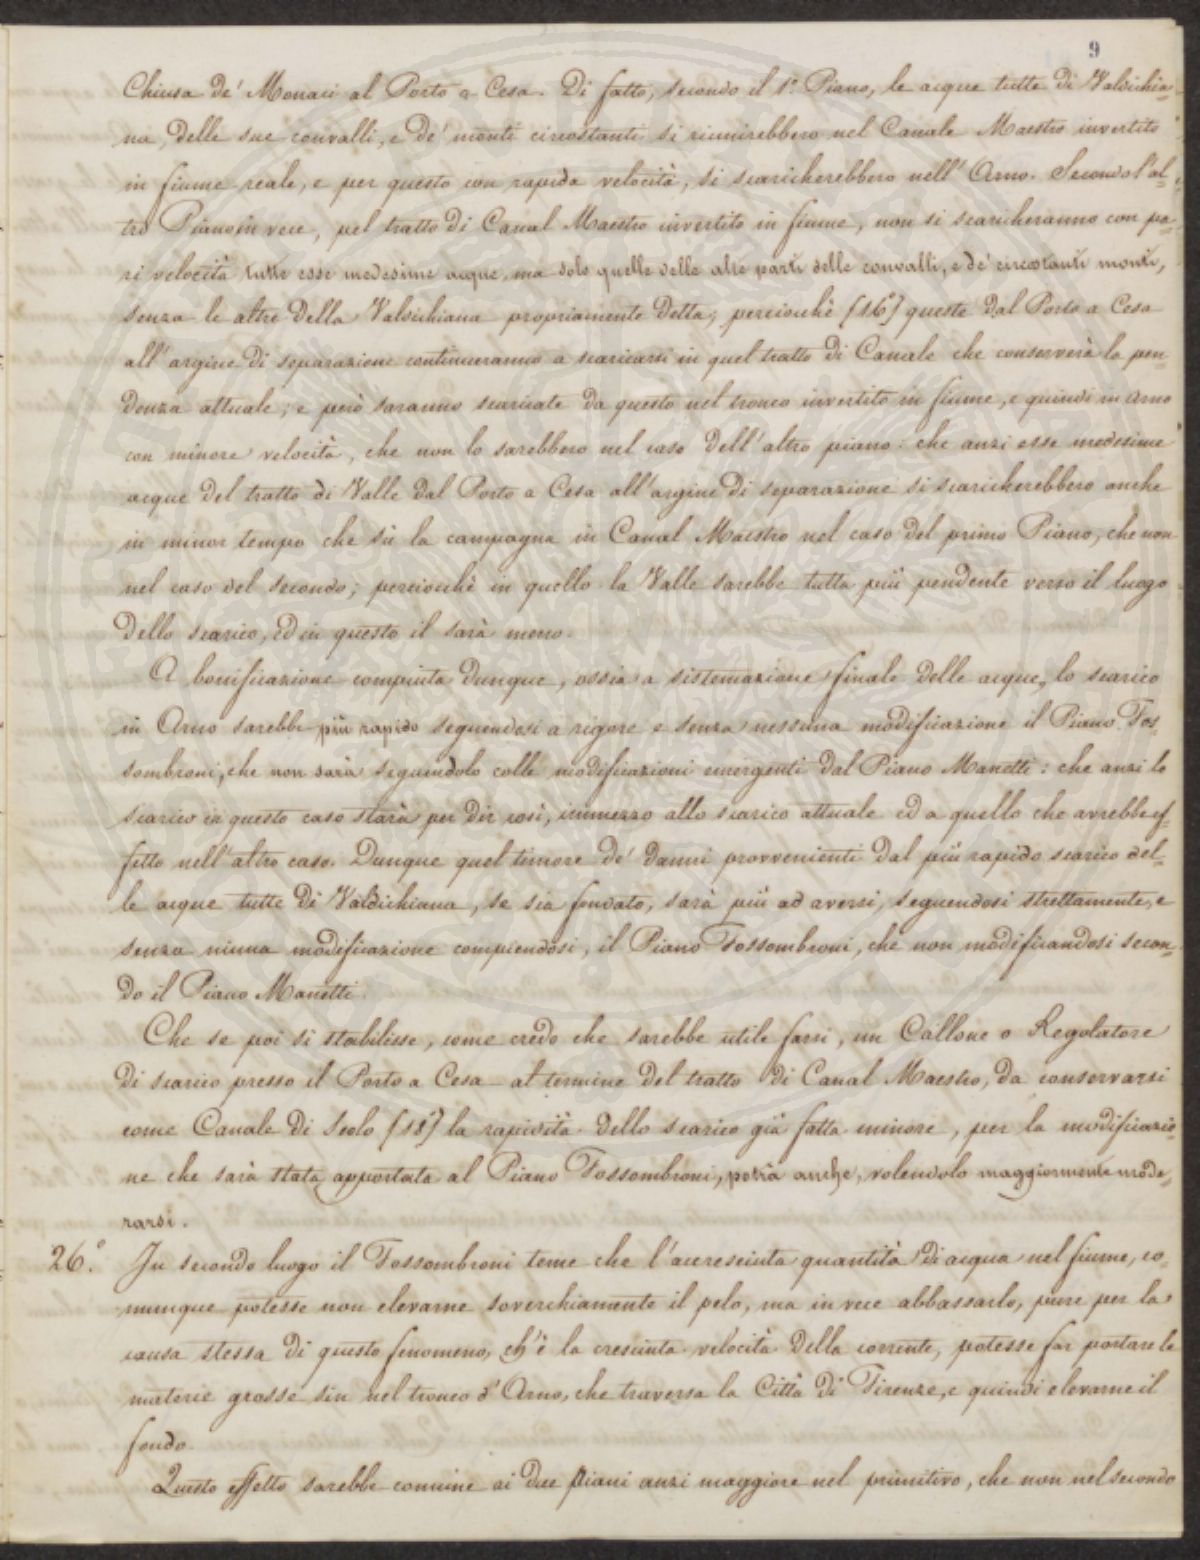 9
Chiusa de' Monaci al Porto a Cesa. Di fatto, secondo il 1.° Piano, le acque tutte di Valdichia=
na, delle sue convalli, e de' monti circostanti si riunirebbero nel Canale Maestro invertito
in fiume reale, e per questo con rapida velocità, si scaricherebbero nell'Arno. Secondo l'al=
tro Piano in vece, pel tratto di Canal Maestro invertito in fiume, non si scaricheranno con pa=
ri velocità tutte esse medesime acque, ma solo quelle delle altre parti delle convalli, e de' circostanti monti,
senza le altre della Valdichiana propriamente detta; perciocchè (16) queste dal Porto a Cesa
all'argine di separazione continueranno a scaricarsi in quel tratto di Canale che conserverà la pen
denza attuale; e però saranno scaricate da questo nel tronco invertito in fiume, e quindi in Arno
con minore velocità, che non lo sarebbero nel caso dell'altro piano: che anzi esse medesime
acque del tratto di Valle dal Porto a Cesa all'argine di separazione si scaricherebbero anche
in minor tempo che sù la campagna in Canal Maestro nel caso del primo Piano, che non
nel caso del secondo; perciocchè in quello la Valle sarebbe tutta più pendente verso il luogo
dello scarico, ed in questo il sarà meno.
A bonificazione compiuta dunque, ossia a sistemazione finale delle acque, lo scarico
in Arno sarebbe più rapido seguendosi a rigore e senza nessuna modificazione il Piano Fos=
sombroni, che non sarà seguendolo colle modificazioni emergenti dal Piano Manetti: che anzi lo
scarico in questo caso starà per dir così, immezzo allo scarico attuale ed a quello che avrebbe ef=
fetto nell'altro caso. Dunque quel timore de' danni provvenienti dal più rapido scarico del=
le acque tutte di Valdichiana, se sia fondato, sarà più ad aversi, seguendosi strettamente, e
senza niuna modificazione compiendosi, il Piano Fossombroni, che non modificandosi secon=
do il Piano Manetti.
Che se poi si stabilisse, come credo che sarebbe utile farsi, un Callone o Regolatore
di scarico presso il Porto a Cesa al termine del tratto di Canal Maestro, da conservarsi
come Canale di Scolo (18) la rapidità dello scarico già fatta minore, per la modificazio=
ne che sarà stata apportata al Piano Fossombroni, potrà anche, volendolo maggiormente mode=
rarsi.
26.° In secondo luogo il Fossombroni teme che l'accresciuta quantità di acqua nel fiume, co=
munque potesse non elevarne soverchiamente il pelo, ma in vece abbassarlo, pure per la
causa stessa di questo fenomeno, ch'è la cresciuta velocità della corrente, potesse far portare le
materie grosse sin nel tronco d'Arno, che traversa la Città di Firenze, e quindi elevarne il
fondo.
Questo effetto sarebbe comune ai due piani anzi maggiore nel primitivo, che non nel secondo